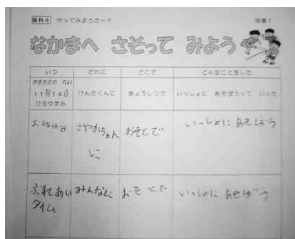 資料4 やってみようカード
授業1
なかまへ さそって みよう
いつ だれに どこで こんなことをした
かきかたの れい
11月14日
ひるやすみ
けんたくんに
きょうしつで
いっしょに あそぼうって いった
さやかちゃん
おそとで
いっしょに あそぼう
ふれあい
タイム
みんなに
おそとで
いっしょに あそぼう